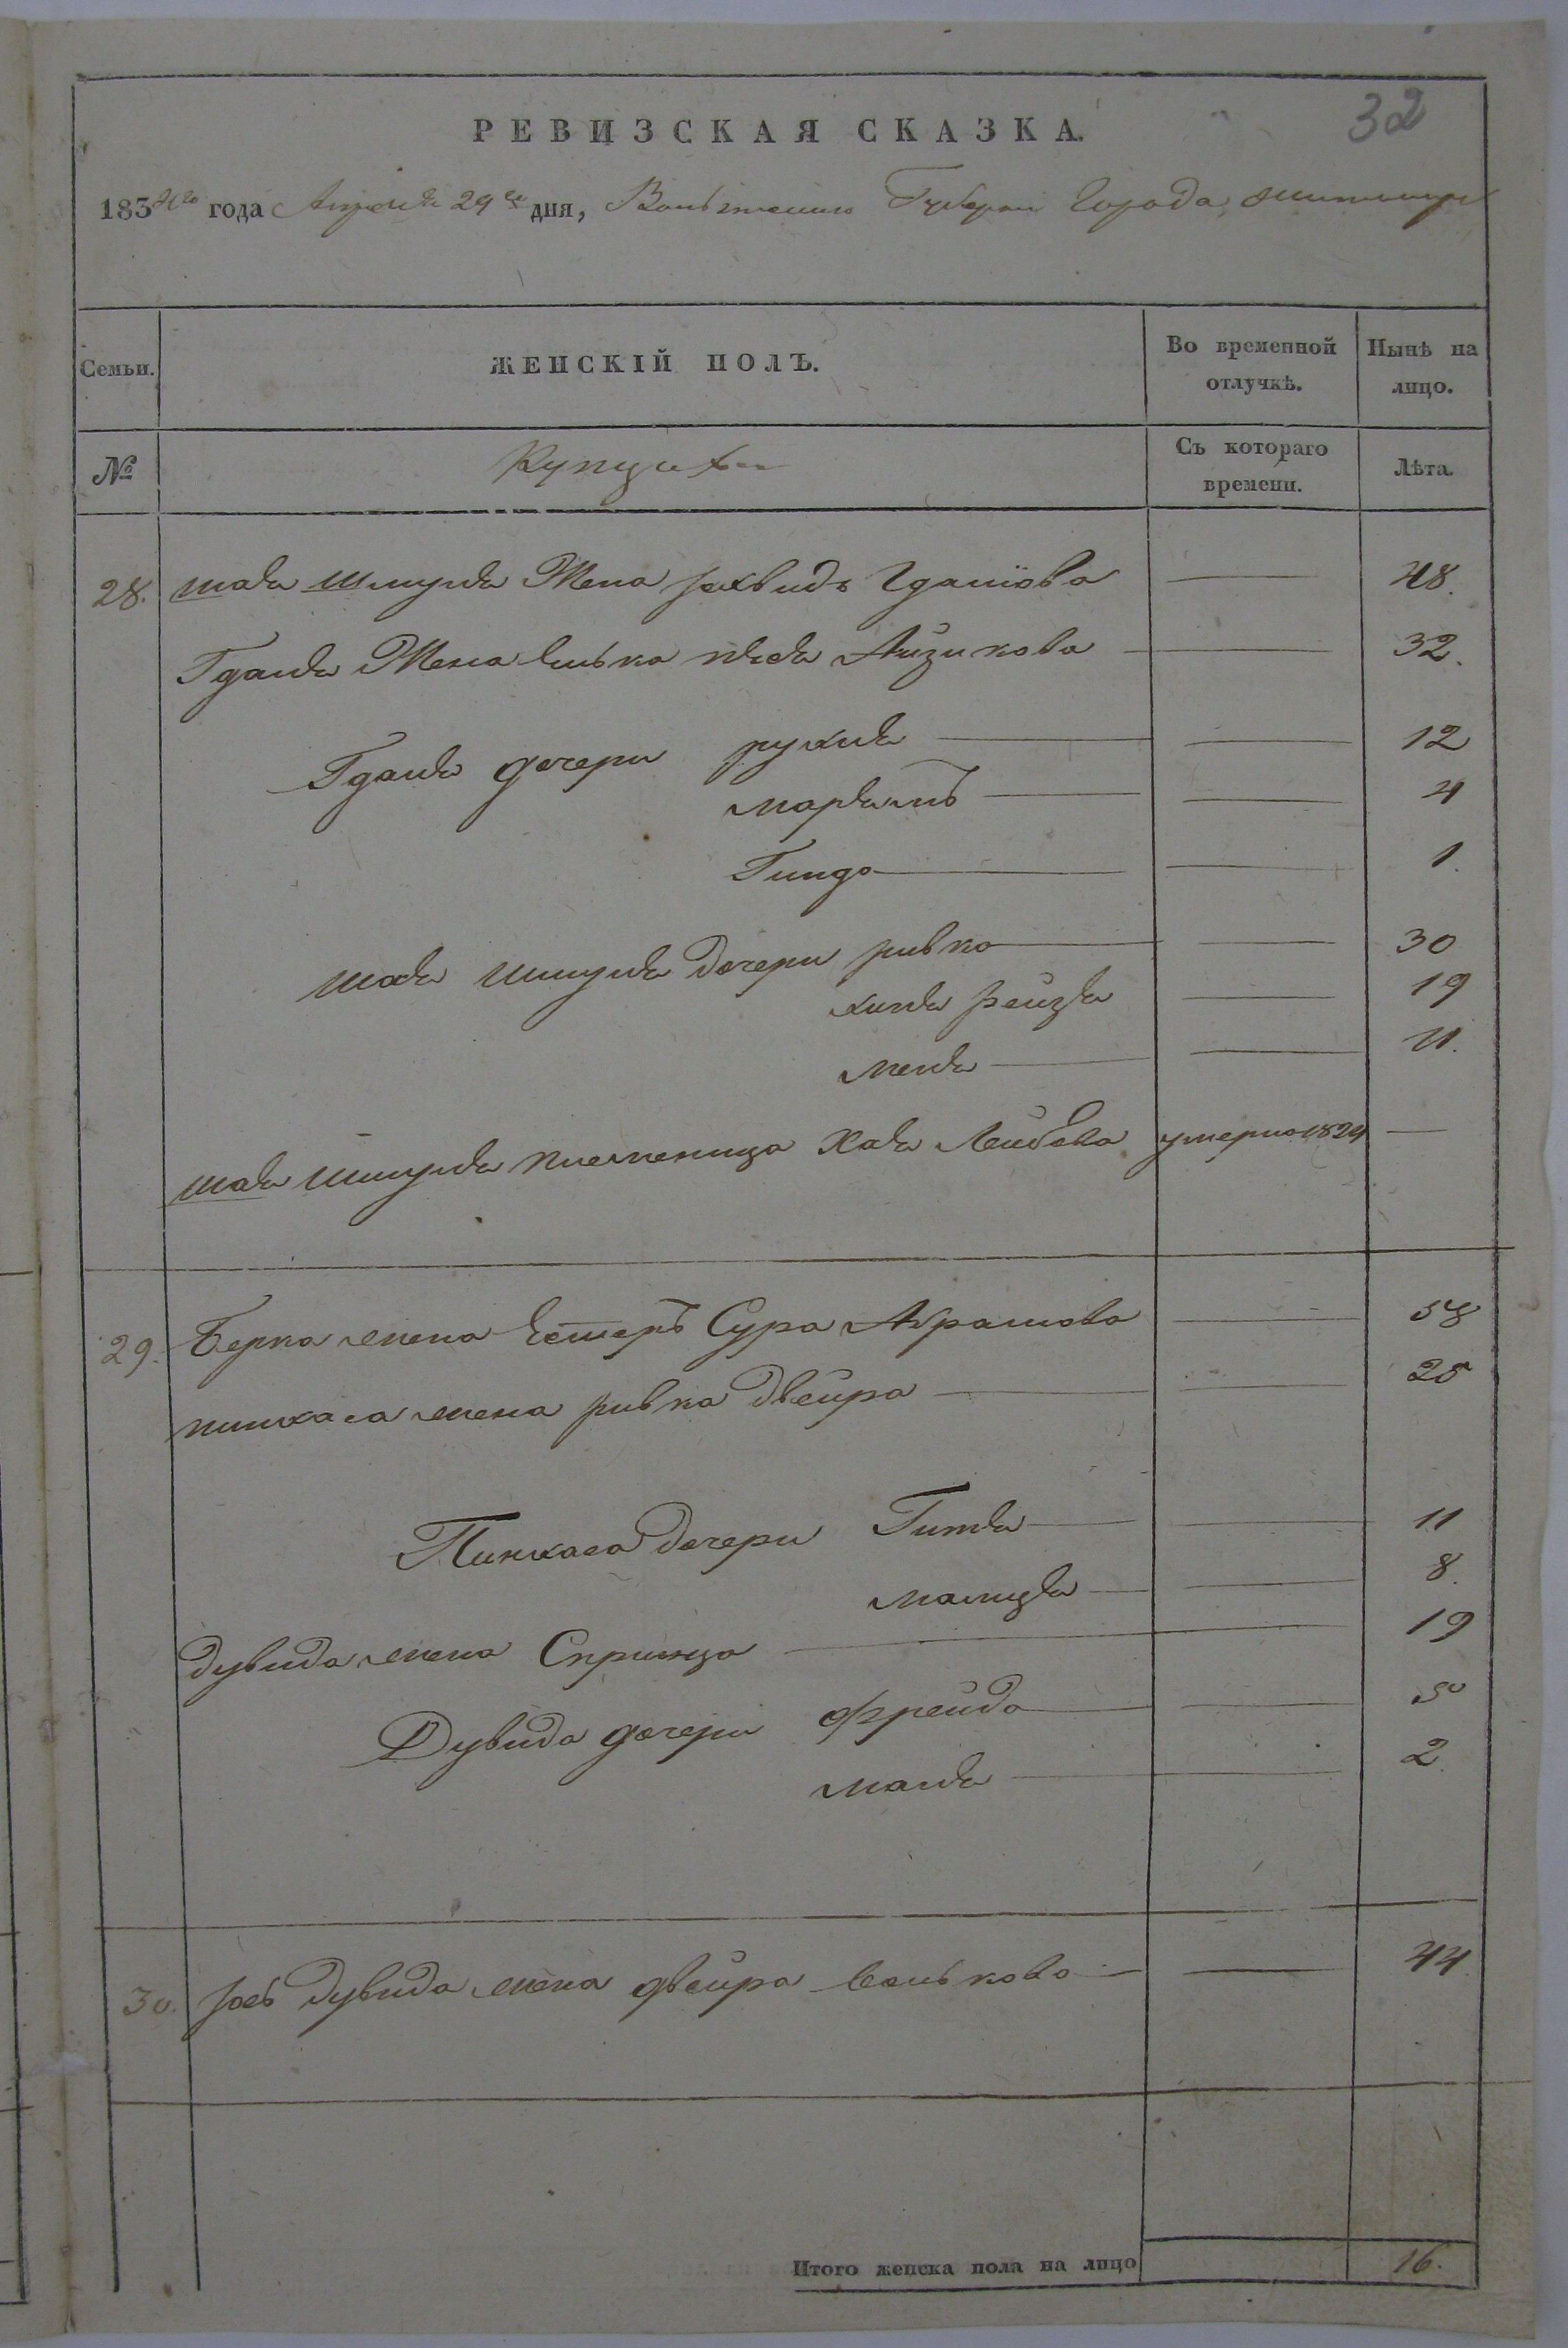 32
РЕВИЗСКАЯ СКАЗКА.
1834го года Апреля 29го дня, Волынской Губернии Города Житомира
Семьи. ЖЕНСКІЙ ПОЛЪ. Во временной отлучкѣ. Нынѣ на лицо.
№ Купцихи Съ котораго времени. Лѣта.
28. Шая Шмуля Жена Рахвидь Гдаліова — 48.
Гдаля Жена Айзикова — 32.
Гдаля дочери рухля — 12
марьямъ — 4
Гинда — 1.
Шая Шмуля дочери ривка — 30
Рейзя — 19
11.
Шая Шмуля племеница Хая Лейбова умерла 1824 —
29. Берка жена Естеръ Сура Абрамова — 58
пинхаса жена ривка двейра — 25
Пинхаса дочери Гитля — 11
8.
дувида жена Сприца — 19
Дувида дочери фрейда — 5
маля — 2
30. дувида жена двейра Волькова — 44
Итого женска пола на лицо 16.